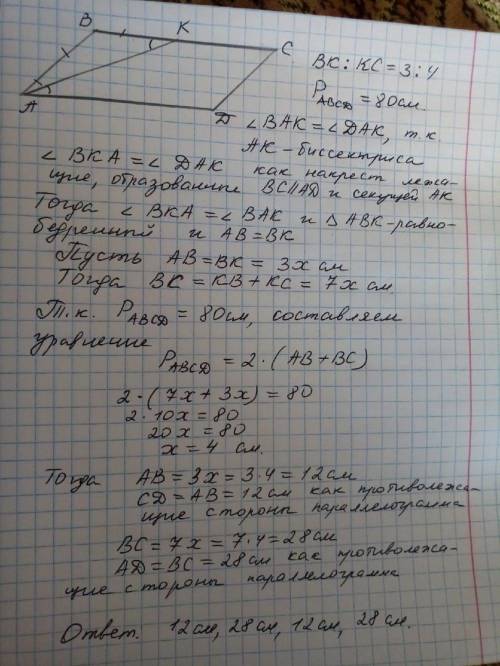 B
K
C
A
D
BK : KC = 3 : 4
P ABCD = 80 см.
∠ BAK = ∠ DAK, т.к.
AK - биссектриса
∠ BKA = ∠ DAK как накрест лежа-
щие, образованные BC || AD и секущей AK
Тогда ∠ BKA = ∠ BAK и △ ABK - равно-
бедренный и AB = BK
Пусть AB = BK = 3x см
Тогда BK = KB + KC = 7x см
Т.к. P ABCD = 80 см, составляем
уравнение
P ABCD = 2 · (AB + BC)
2 · (7x + 3x) = 80
2 · 10x = 80
20x = 80
x = 4 см.
Тогда AB = 3x = 3 · 4 = 12 см
CD = AB = 12 см как противолежа-
щие стороны параллелограмма
BC = 7x = 7 · 4 = 28 см
AD = BC = 28 см как противолежа-
щие стороны параллелограмма
Ответ. 12 см, 28 см, 12 см, 28 см.